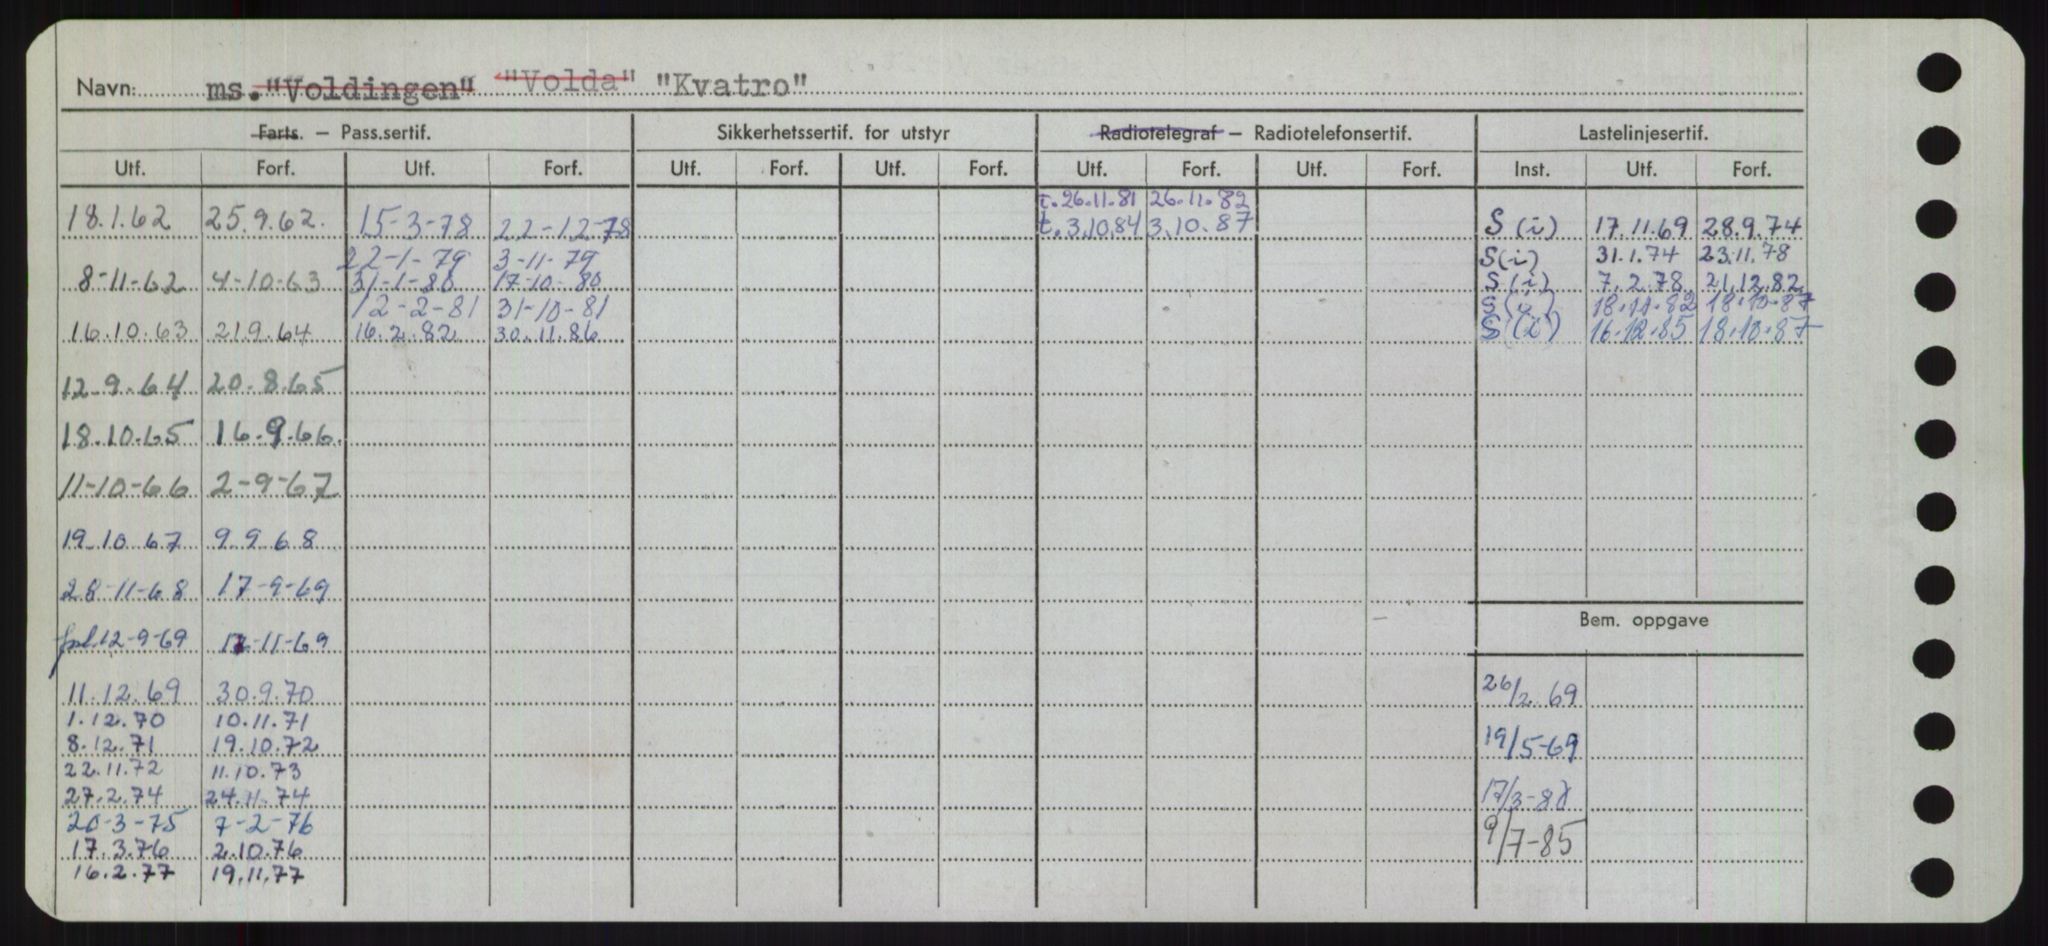 Navn: ms. "Voldingen" "Volda" "Kvatro"
Farts. – Pass.sertif. Sikkerhetssertif. for utstyr Radiotelegraf – Radiotelefonsertif. Lastelinjesertif.
Utf. Forf. Utf. Forf. Utf. Forf. Utf. Forf. Utf. Forf. Utf. Forf. Inst. Utf. Forf.
t. 26.11.81 26.11.82
18.1.62 25.9.62. 15-3-78 22-12-78 t. 3.10.84 3.10.87 S (i) 17.11.69 28.9.74
22-1-79 3-11-79 S(i) 31.1.74 23.11.78
8-11-62 4-10-63 31-1-80 17-10-80 S (i) 7.2.78 21.12.82
12-2-81 31-10-81 S (i) 18.11.82 18.10.87
16.10.63 21.9.64 16.2.82 30.11.86 S (i) 16.12.85 18.10.87
12.9.64 20.8.65
18.10.65 16.9.66.
11-10-66 2-9-67
19.10 67 9.9 68
28-11-68 17-9-69
12-9-69 -11-69
Bem. oppgave
11.12.69 30.9.70 26/2 69
1.12.70 10.11.71
8.12.71 19.10.72 19/5-69
22.11.72 11.10.73
27.2.74 24.11.74 17/3-8
20-3-75 7-2-76
17.3.76 2.10.76 9/7-85
16.2.77 19.11.77